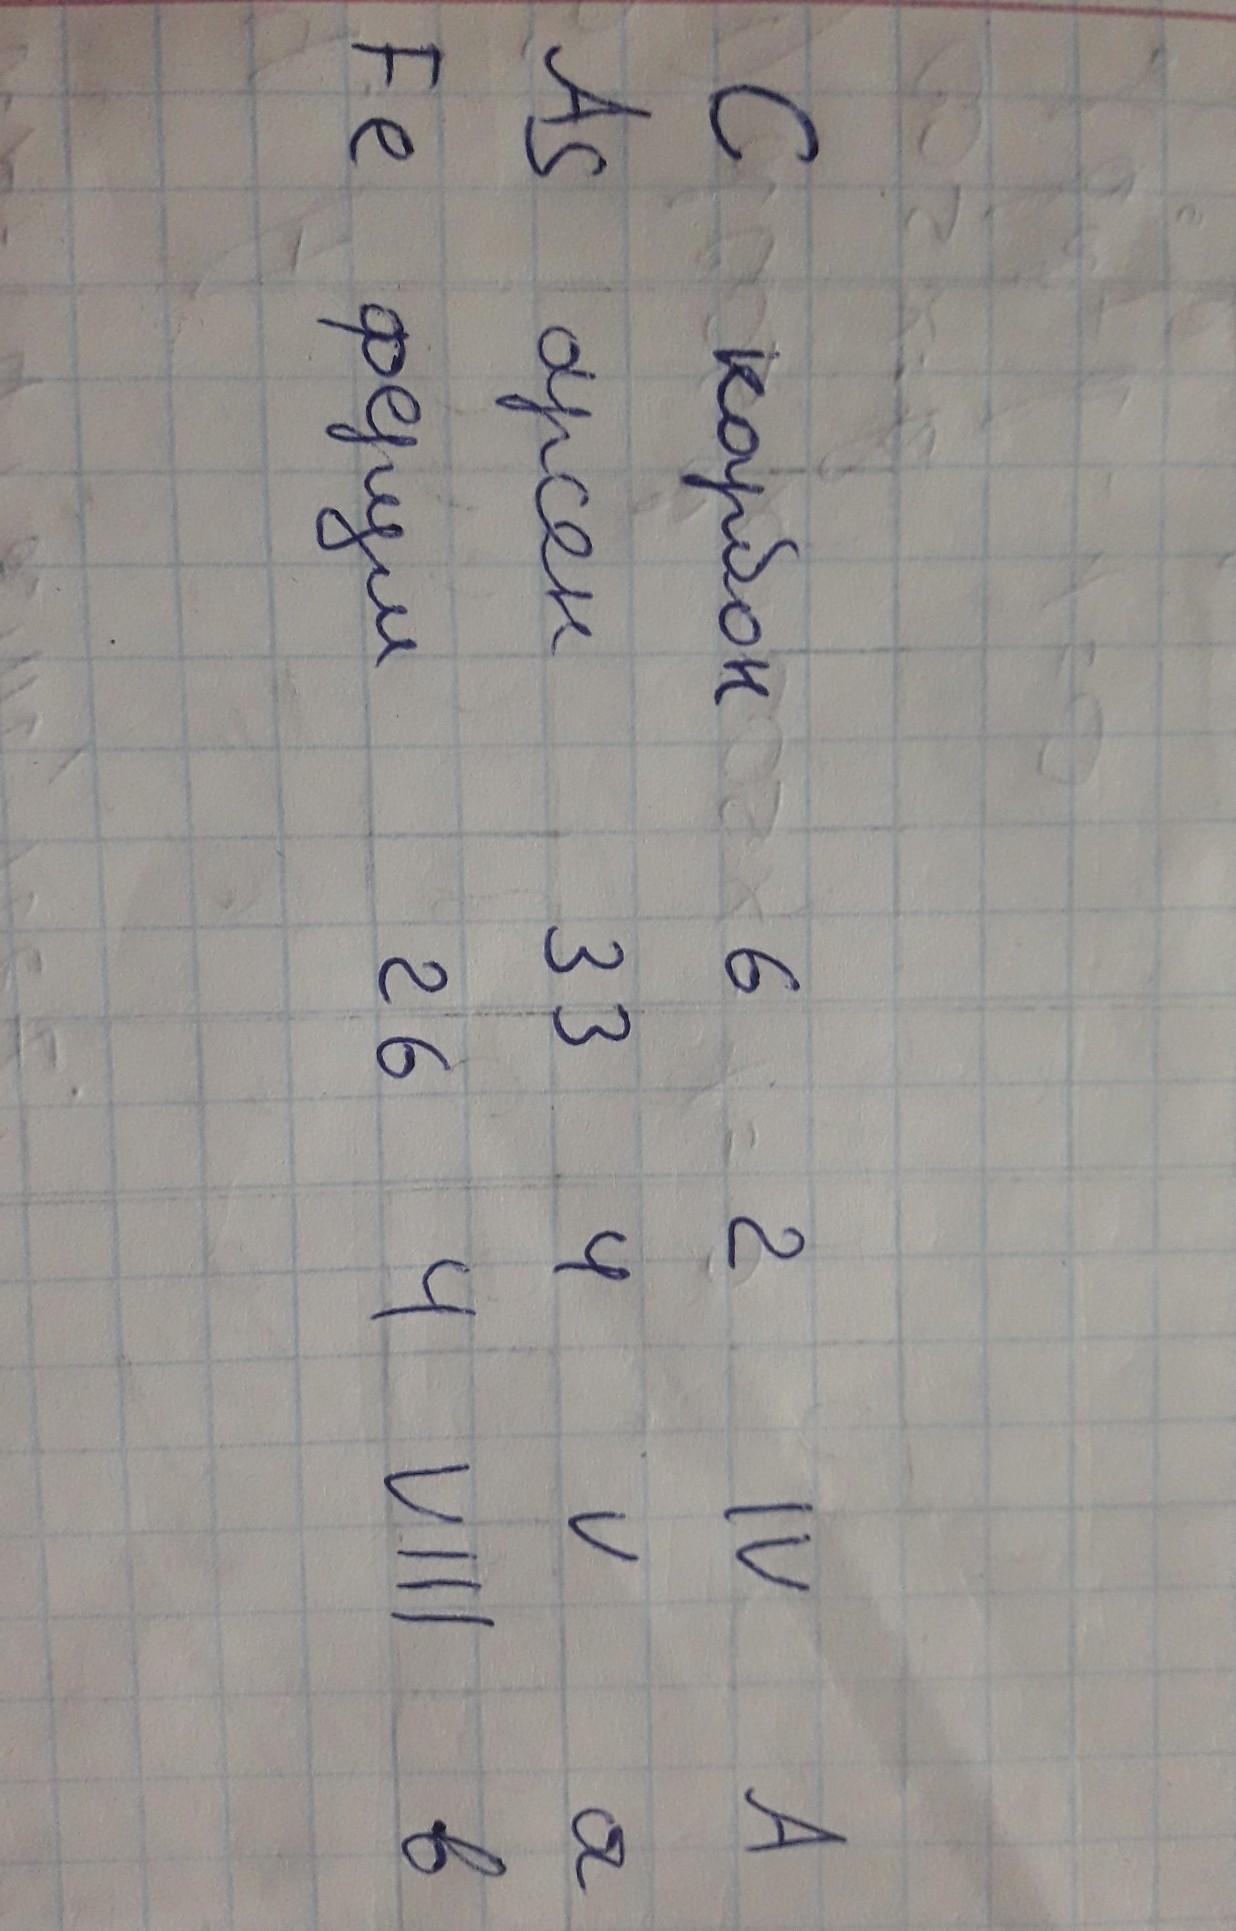 C карбон 6 2 IV A
As арсен 33 4 V а
Fe ферум 26 4 VIII в